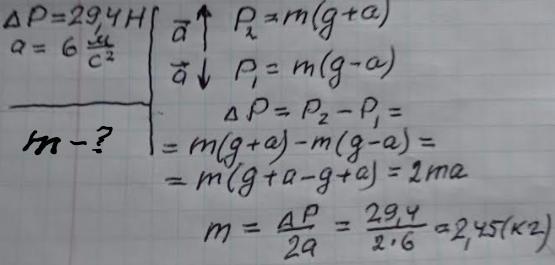 ΔP = 29,4 Н
a = 6 м/с²
m - ?
a⃗ ↑ P₂ = m(g+a)
a⃗ ↓ P₁ = m(g-a)
ΔP = P₂ - P₁ =
= m(g+a) - m(g-a) =
= m(g+a-g+a) = 2ma
m = ΔP/2a = 29,4/2·6 = 2,45 (кг)